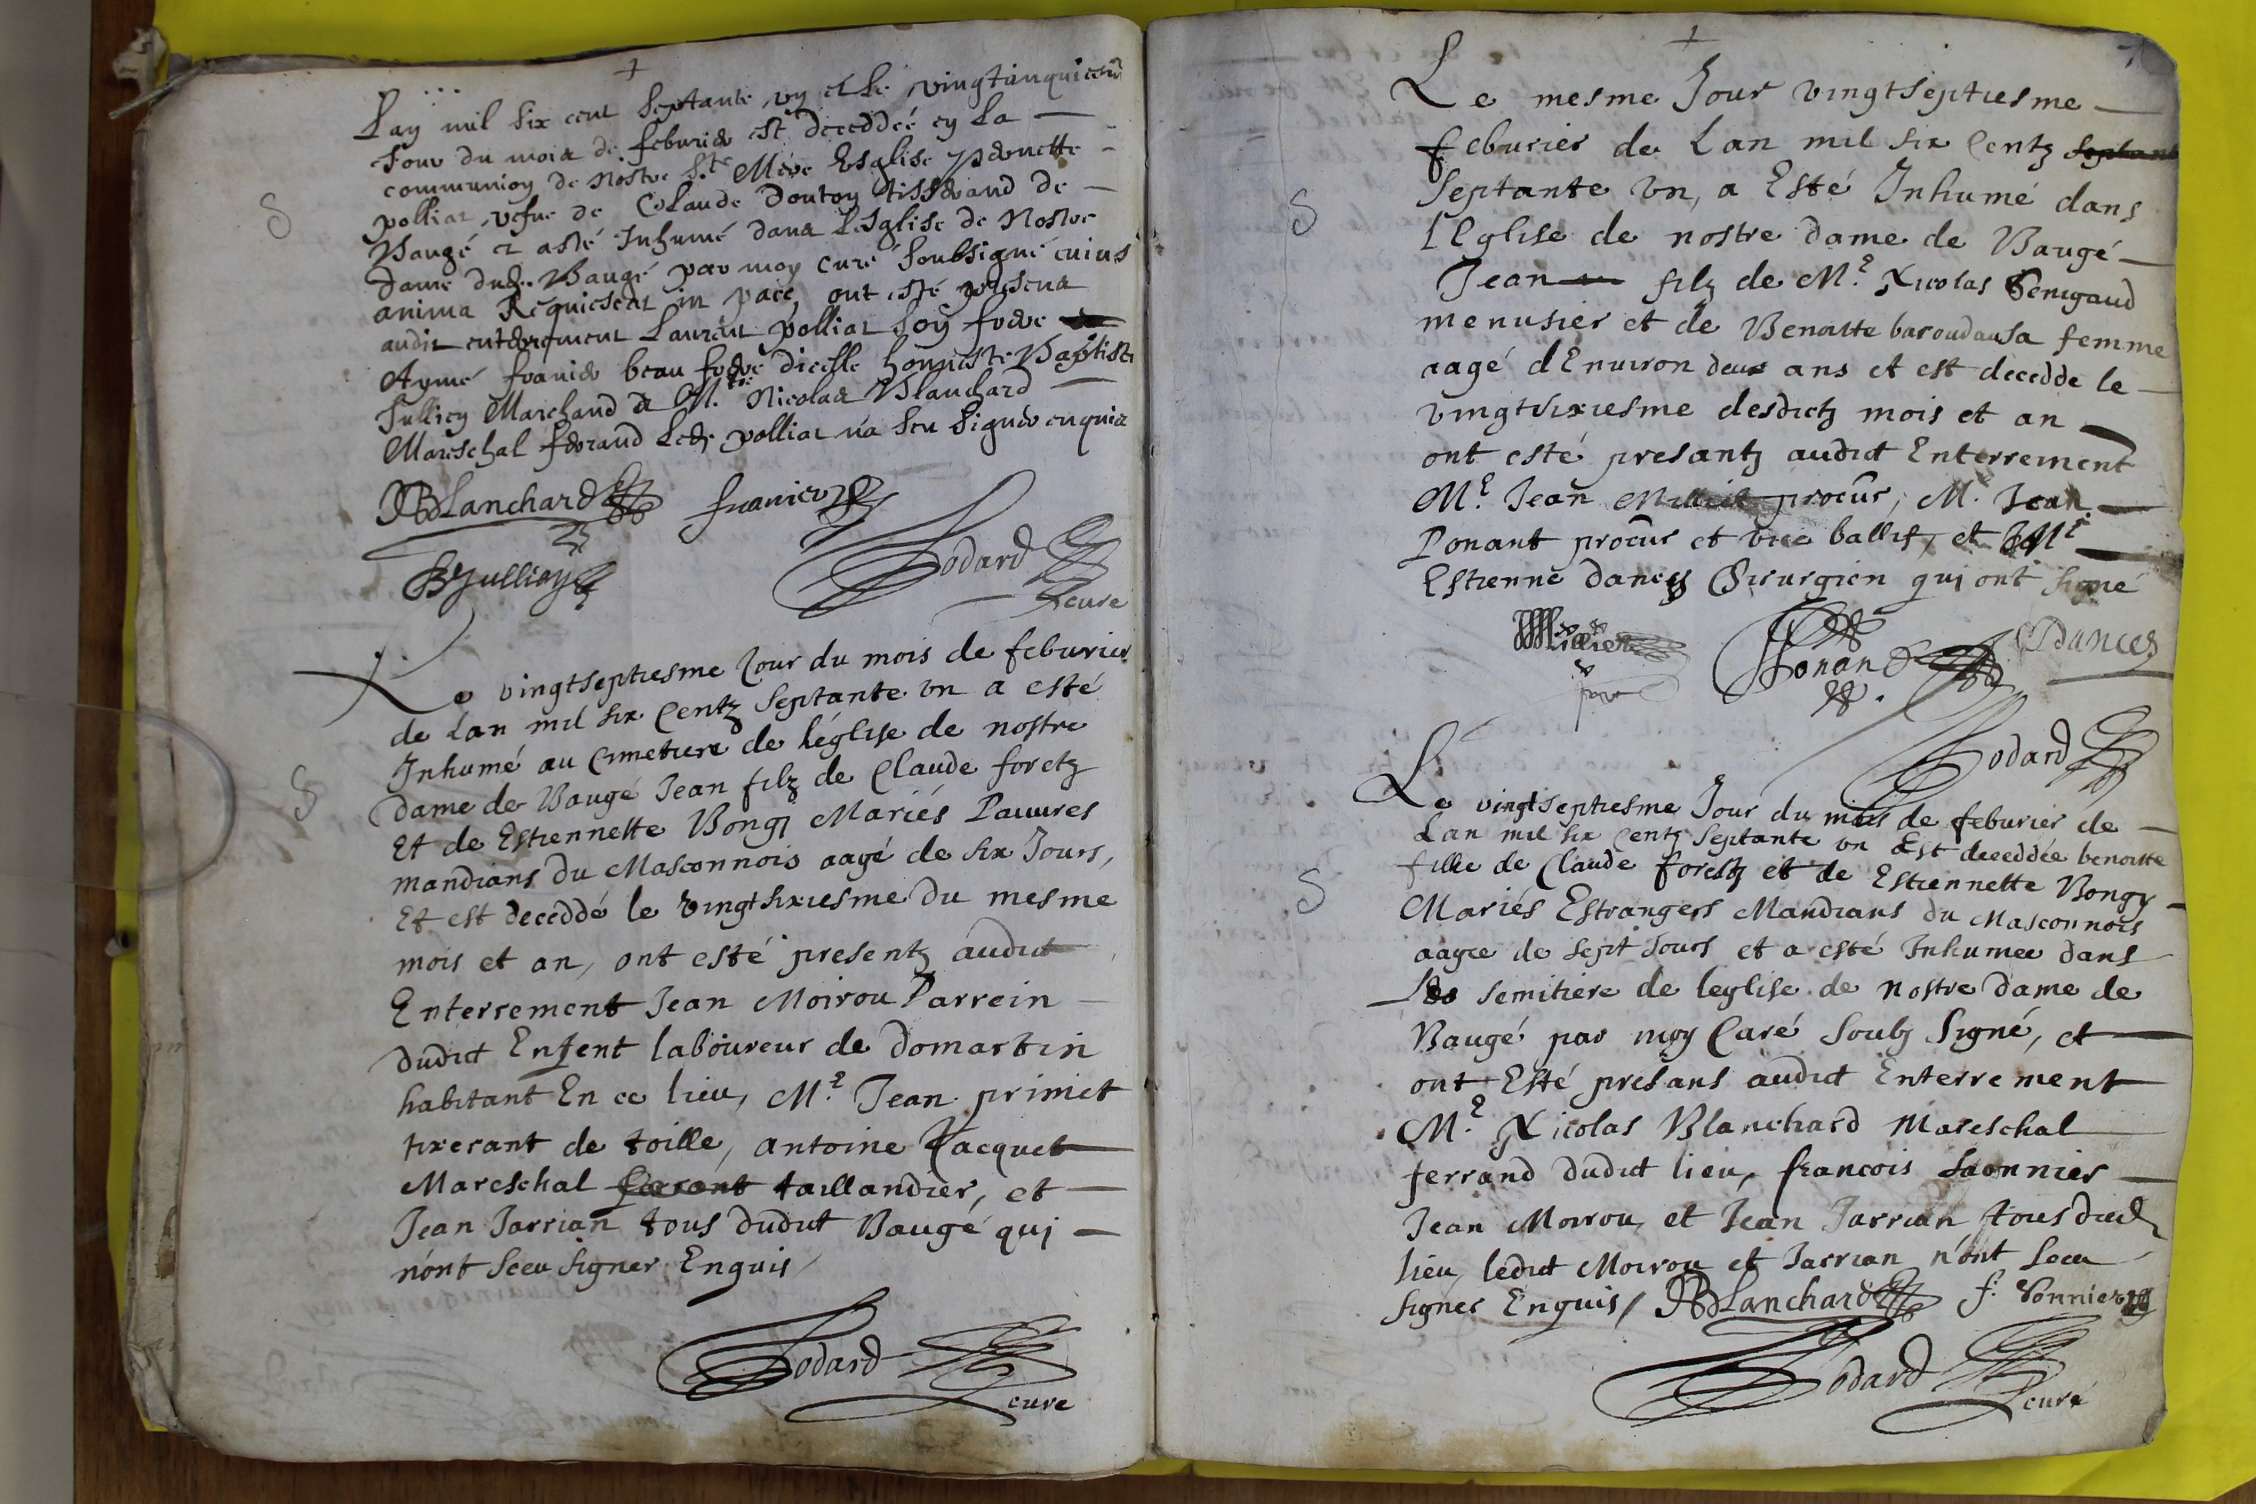 Lan mil six cent septante un et le vingtcinquiesme
Jour du mois de feburier est deceddée en la
communion de Nostre Ste Mere Esglise pernette
polliat vefue de Claude Donton tisserand de
Baugé et a esté Inhumé dans Lesglise de Nostre
Dame dud. Baugé par moy curé soubsigné cuius
anima Requiescat in pace, ont esté presens
audit enterrement Laurent polliat son frere
Aymé franier beau frere dicelle honneste Baptiste
Jullien Marchand & M.tre Nicolas Blanchard
Mareschal ferrand Led. polliat na seu signer enquis
NBlanchard franier
BJullien Godard
curé
Le vingtseptiesme Jour du mois de feburier
de Lan mil six Centz septante un a esté
Inhumé au Cimetiere de léglise de nostre
Dame de Baugé Jean filz de Claude foretz
Et de Estiennette Bongy Mariés Pauures
mandians du Masconnois aagé de six Jours,
Et est deceddé le vingtsixiesme du mesme
mois et an, ont esté presentz audict
Enterrement Jean Moirou Parrein
dudict Enfent laboureur de domartin
habitant En ce lieu, M.e Jean primet
tixerant de toille, antoine Jacquet
Mareschal ferrant taillandier, et
Jean Jarrian tous dudict Baugé quj
nónt sceu signer Enquis
Godard
curé
Le mesme Jour vingtseptiesme
feburier de Lan mil six Centz septant
septante un, a Esté Inhumé dans
lEglise de nostre dame de Baugé
Jean filz de M.e Nicolas Genigaud
menusier et de Benoitte baroudau sa femme
aagé dEnuiron deux ans et est decedde le
vingtsixiesme desdictz mois et an
ont esté presantz audict Enterrement
M.e Jean Millict procur, M.e Jean
Ponant procur et vice ballif, et M.e
Estienne dances Chirurgien quj ont signé
Millict Ponant EDances
pnt
Godard
Le vingtseptiesme Jour du mois de feburier de
Lan mil six Centz septante un Est deceddée benoitte
fille de Claude forestz et de Estiennette Bongy
Mariés Estrangers Mandians du Masconnois
aagee de sept Jours et a esté Inhumee dans
Le semitiere de leglise de nostre dame de
Baugé par moy Curé soubz signé, et
ont Esté presans audict Enterrement
M.e Nicolas Blanchard Mareschal
ferrand dudict lieu, francois saonnier
Jean Moirou et Jean Jarrian tous dud.
lieu, ledict Moirou et Jarrian nónt sceu
signer Enquis / NBlanchard f. sonnier
Godard
curé